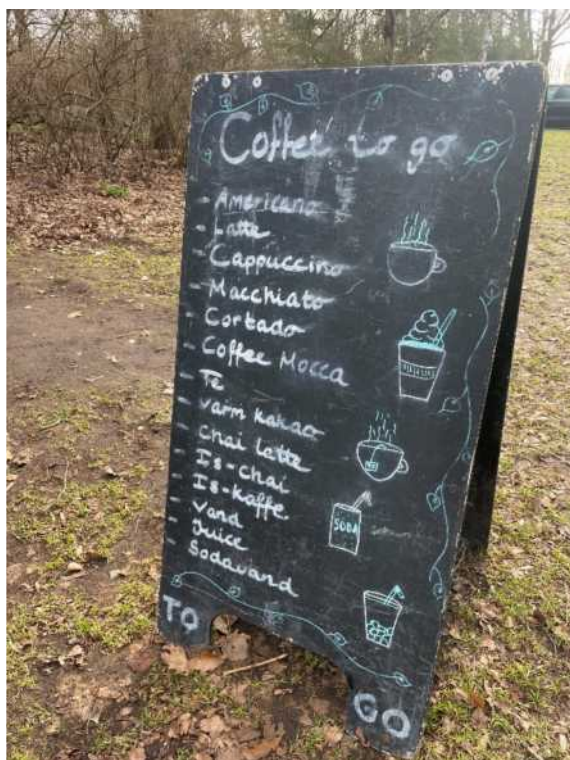 Coffee to go
- Americano
- Latte
- Cappuccino
- Macchiato
- Cortado
- Coffee Mocca
- Te
- Varm kakao
- Chai latte
- Is-chai
- Is-kaffe
- Vand
- Juice
- Sodavand
SODA
TO
GO